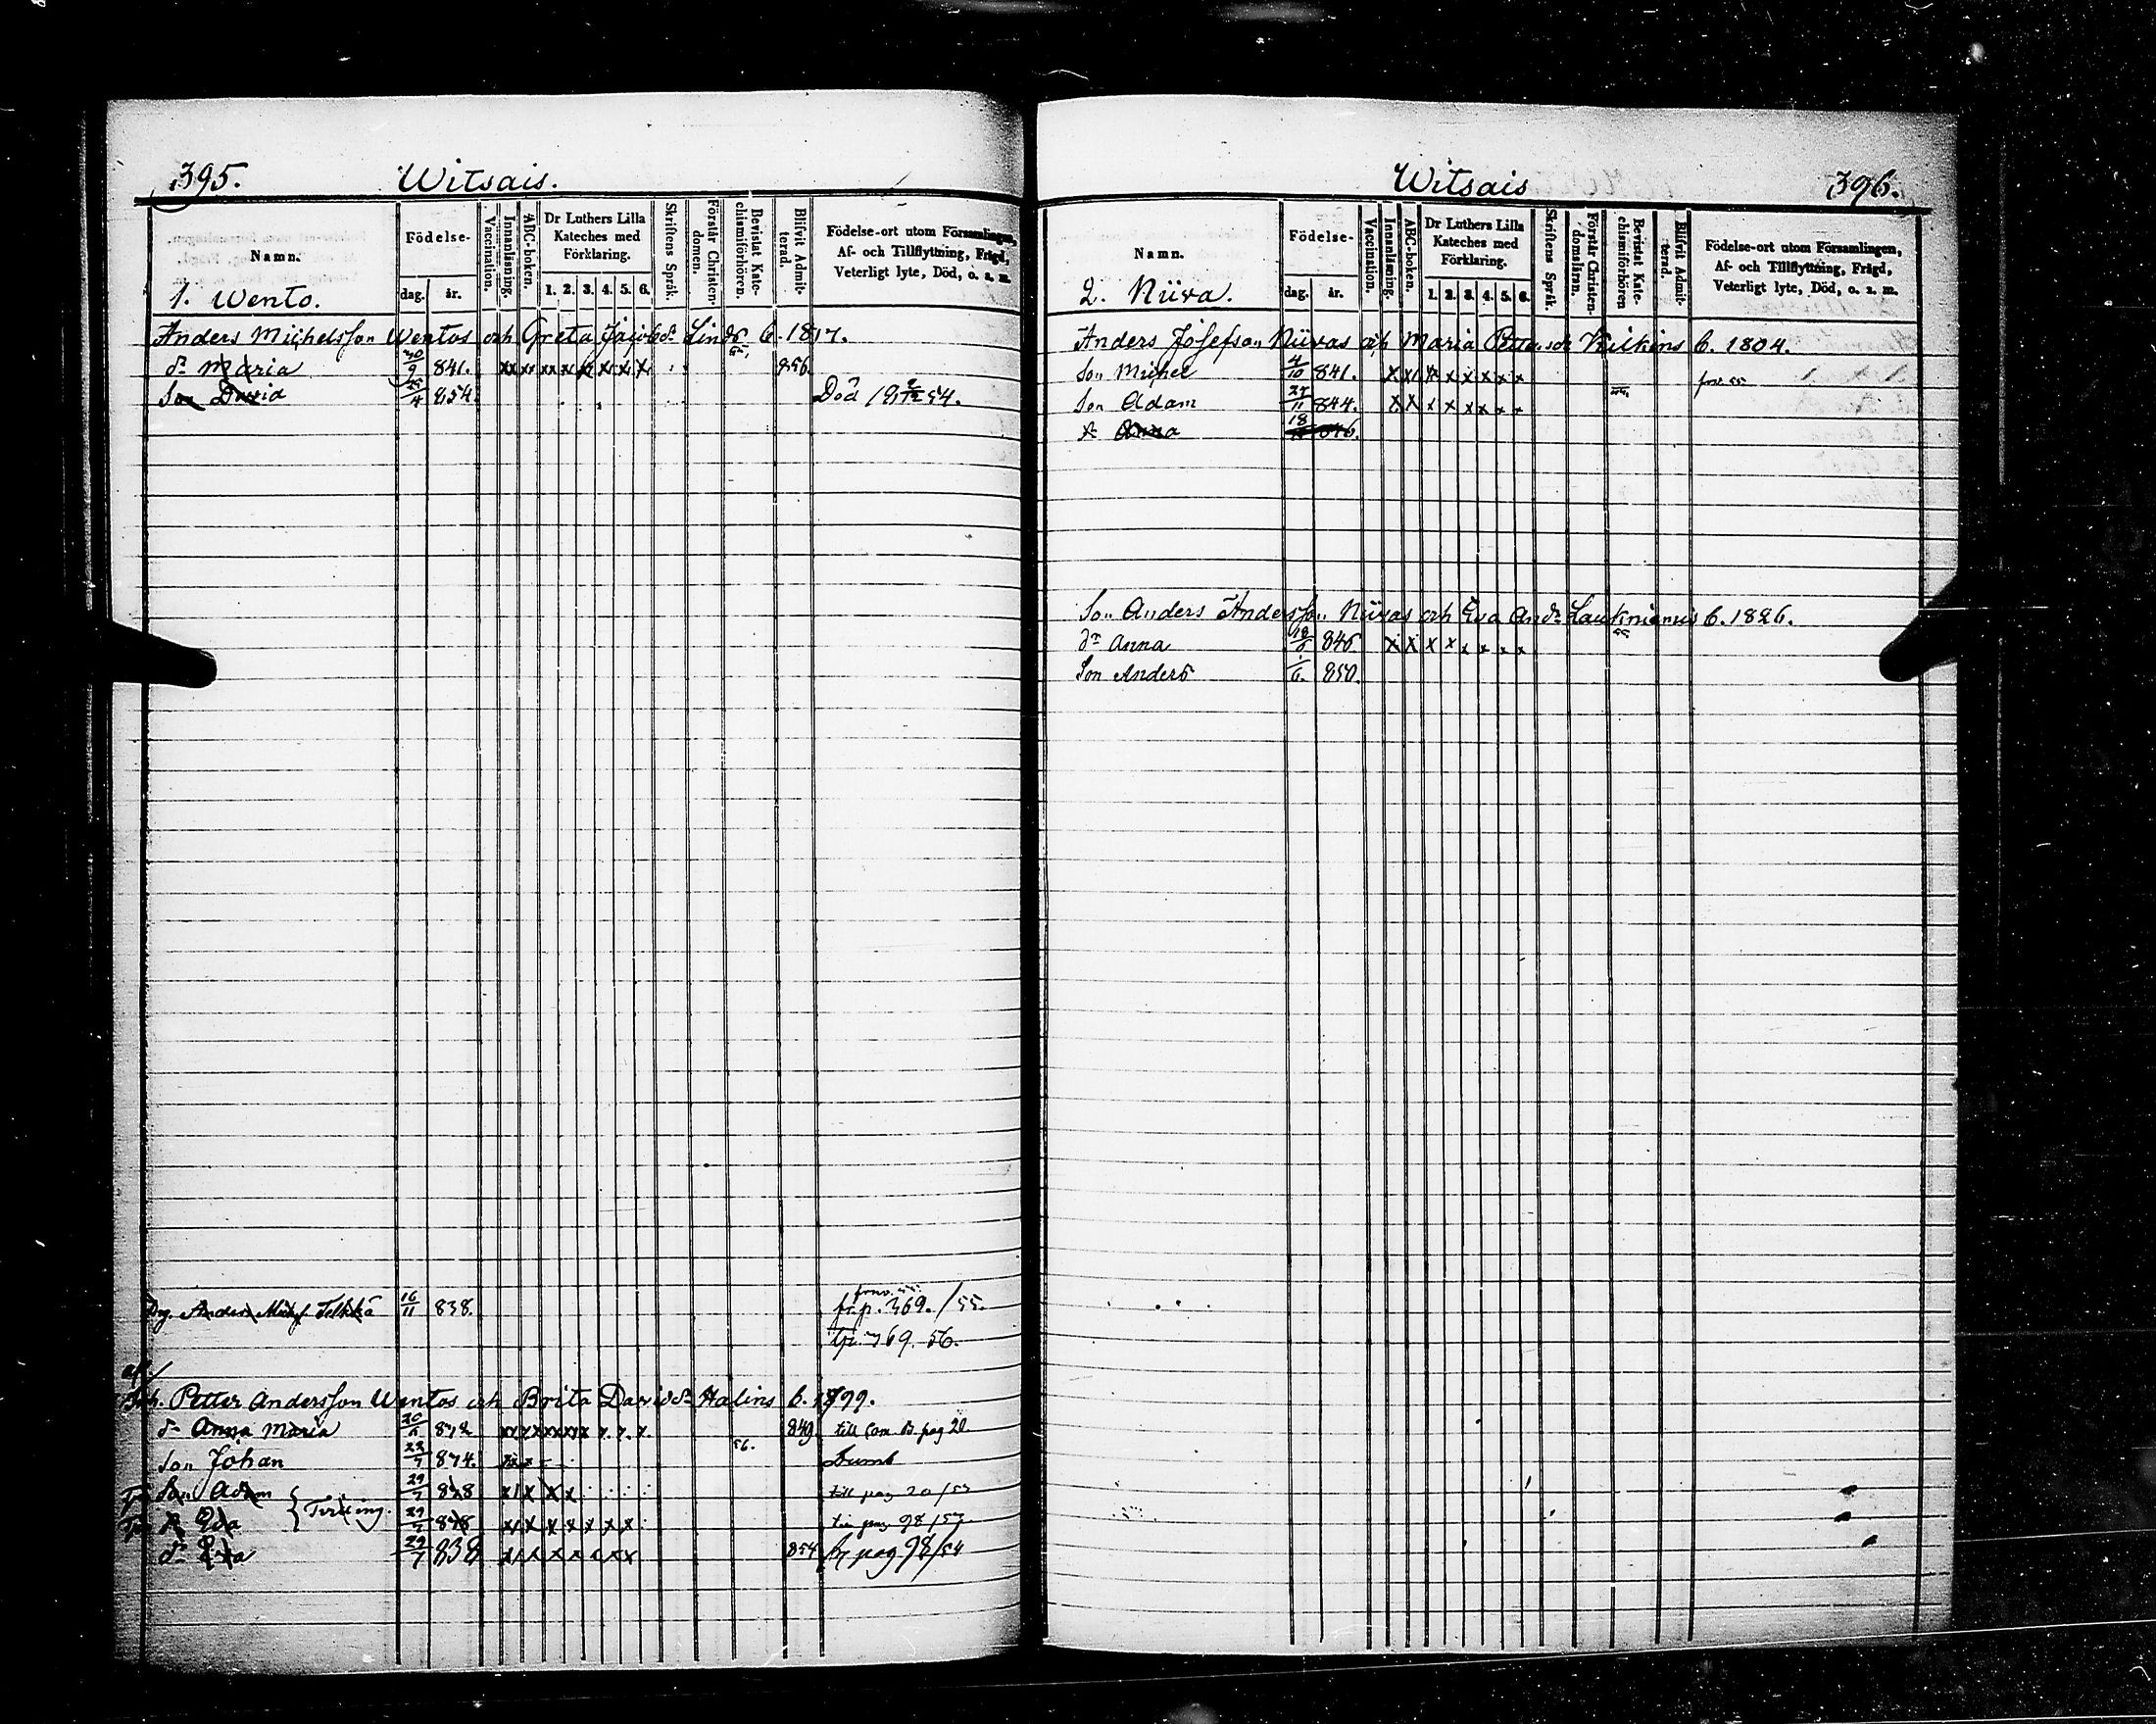 395. Witsais.
Namn.
Födelse-
dag. år.
Vaccination.
Innanläsning.
ABC-boken.
Dr Luthers Lilla Kateches med Förklaring.
1. 2. 3. 4. 5. 6.
Skriftens Språk.
Förstår Christendomen.
Bevistat Katechismiförhören.
Blifvit Admitterad.
Födelse-ort utom Församlingen, Af- och Tillflyttning, Frägd, Veterligt lyte, Död, o. s. m.
1. Wento.
Anders Michelsson Wentos och Greta Jacobsdr Linds 6. 1817.
dr Maria 30/9 841. xx xx xx x x x x x 856.
Son David 25/4 854. Död 19/12 54.
Dg. Anders Telkkä 16/11 838. fr. p. 369. /55.
369. 56.
Petter Andersson Wentos och Brita Davidsdr Halins 6. 1799.
dr Anna Maria 832 849. till pag 20
Son Johan 834. 56. Dumb
Son Adam 29/7 838 x x x x till pag 20/53
dr Eva 29/7 838 x x x x x x x pag 98/53
Tvilling
dr Eva 29/7 838 854 pag 98/54
Witsais 396.
Namn.
Födelse-
dag. år.
Vaccination.
Innanläsning.
ABC-boken.
Dr Luthers Lilla Kateches med Förklaring.
1. 2. 3. 4. 5. 6.
Skriftens Språk.
Förstår Christendomsläran.
Bevistat Katechismiförhören
Blifvit Admitterad.
Födelse-ort utom Församlingen, Af- och Tillflyttning, Frägd, Veterligt lyte, Död, o. s. m.
2. Niira.
Anders Josefson Niiras och Maria Pettersdr Kilkins 6. 1804.
Son Michel 4/10 841. x x x x x x x x
Son Adam 27/11 844. x x x x x x x x
dr Anna 18 846.
Son Anders Andersson Niiras och Eva Andr Laukniemis 6. 1826.
dr Anna 846 x x x x x x x x
Son Anders 850.